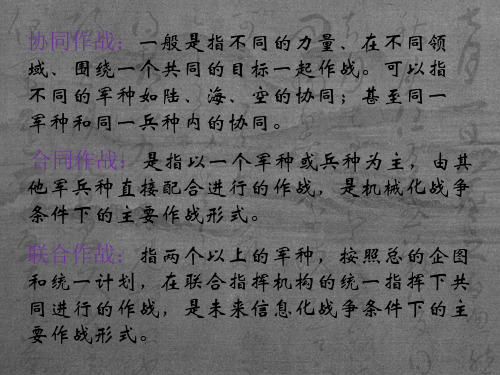 协同作战：一般是指不同的力量、在不同领
域、围绕一个共同的目标一起作战。可以指
不同的军种如陆、海、空的协同；甚至同一
军种和同一兵种内的协同。
合同作战：是指以一个军种或兵种为主，由其
他军兵种直接配合进行的作战，是机械化战争
条件下的主要作战形式。
联合作战：指两个以上的军种，按照总的企图
和统一计划，在联合指挥机构的统一指挥下共
同进行的作战，是未来信息化战争条件下的主
要作战形式。